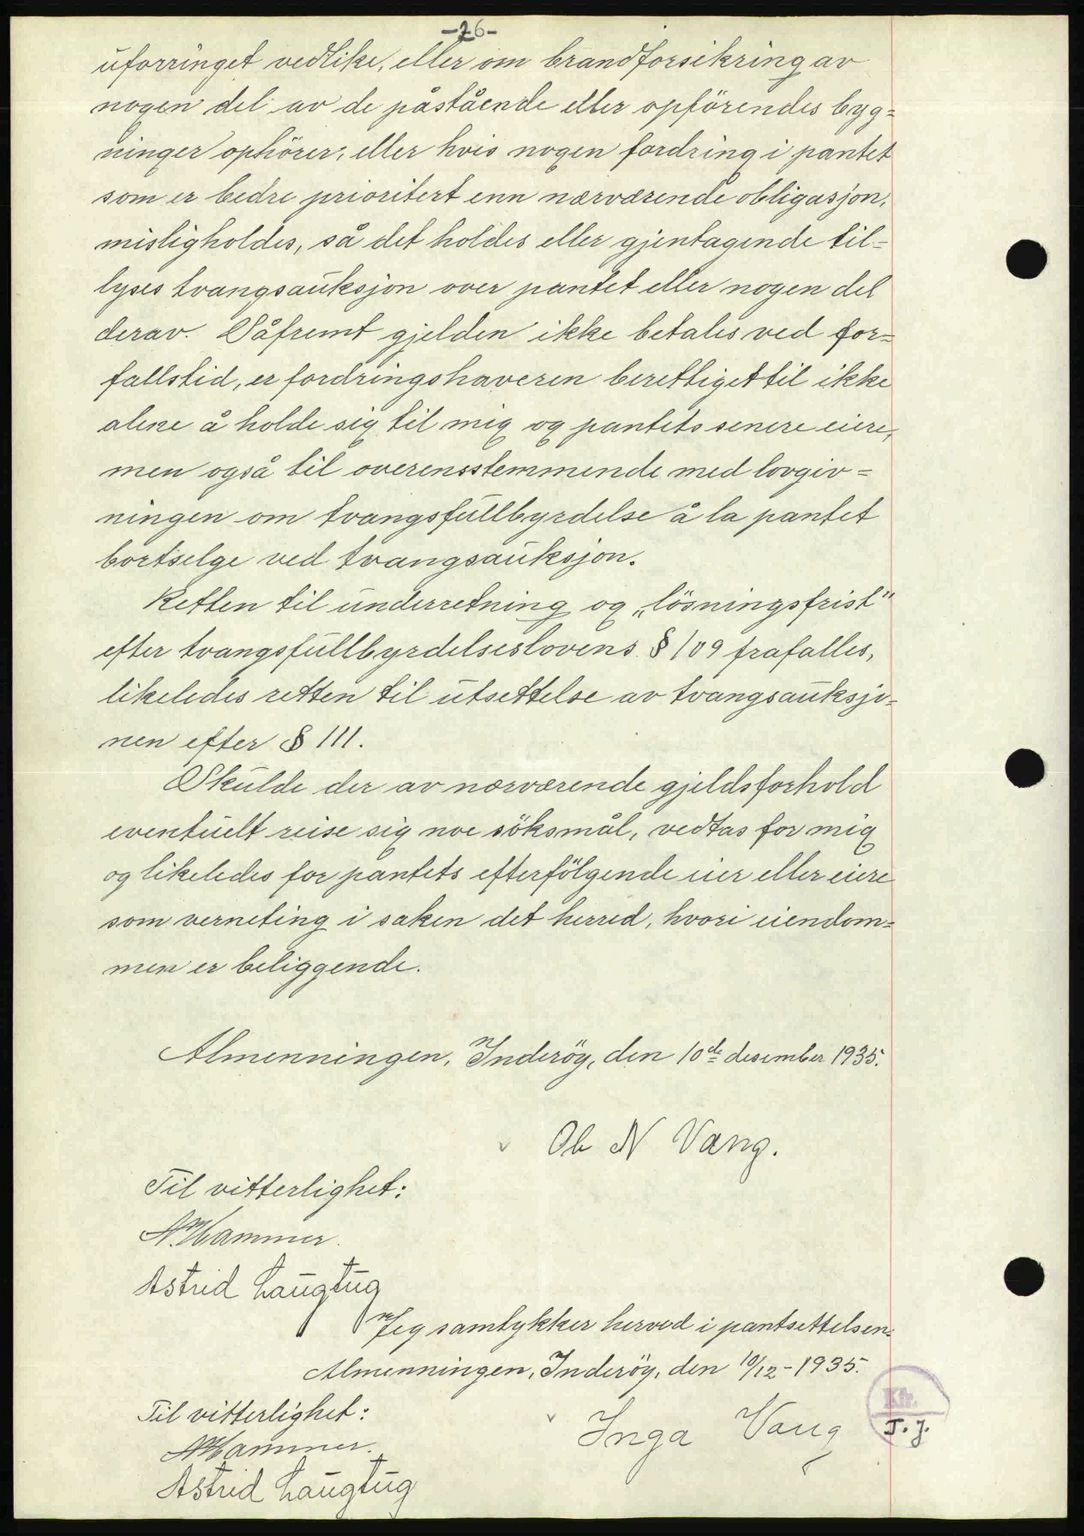 -26-
uforringet vedlike, eller om brandforsikring av
nogen del av de påstående eller opförendes byg=
ninger ophörer, eller hvis nogen fordring i pantet
som er bedre prioritert enn nærværende obligasjon,
misligholdes, så det holdes eller gjentagende til=
lyses tvangsauksjon over pantet eller nogen del
derav. Såfremt gjelden ikke betales ved for=
fallstid, er fordringshaveren berettiget til ikke
alene å holde sig til mig og pantets senere eiere,
men også til overensstemmende med lovgiv=
ningen om tvangsfullbyrdelse å la pantet
bortselge ved tvangsauksjon.
Retten til underretning og „lösningsfrist"
efter tvangsfullbyrdelseslovens § 109 frafalles,
likeledes retten til utsettelse av tvangsauksjo=
nen efter § 111.
Skulde der av nærværende gjeldsforhold
eventuelt reise sig noe söksmål, vedtas for mig
og likeledes for pantets efterfölgende eier eller eiere
som verneting i saken det herred, hvori eiendom=
men er beliggende.
Almenningen, Inderöy, den 10de desember 1935.
Ole N Vang.
Til vitterlighet:
N. Hammer.
Astrid Laugtug
Jeg samtykker herved i pantsettelsen.
Almenningen, Inderöy, den 10/12-1935.
Til vitterlighet:
Inga Vang
Kfr.
J. J.
N. Hammer.
Astrid Laugtug